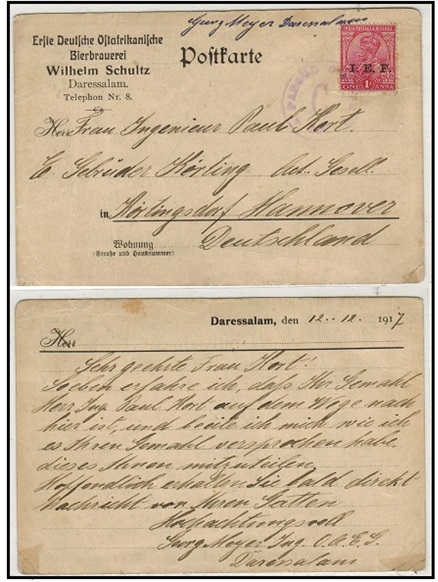 Georg Meyer Daressalam
Erste Deutsche Ostafrikanische
Bierbrauerei
Wilhelm Schultz
Daressalam.
Telephon Nr. 8.
Postkarte
INDIA POSTAGE & REVENUE
I. E. F.
ONE 1A ANNA
PASSED
Herr Frau Ingenieur Paul Hort.
E Gebrüder Körting Act. Gesell.
in Körtingsdorf Hannover
Deutschland
Wohnung
(Straße und Hausnummer)
Daressalam, den 12.-12. 1917
Herr
Sehr geehrte Frau Hort!
Soeben erfahre ich, daß Ihr Gemahl
Herr Ing. Paul Hort auf dem Wege nach
hier ist, und beeile ich mich wie ich
es Ihren Gemahl versprochen habe
dieses Ihnen mitzuteilen
Hoffendlich erhalten Sie bald direkt
Nachricht von Ihren Gatten
Hochachtungsvoll
Georg Meyer Ing. O.A.E.G.
Daressalam